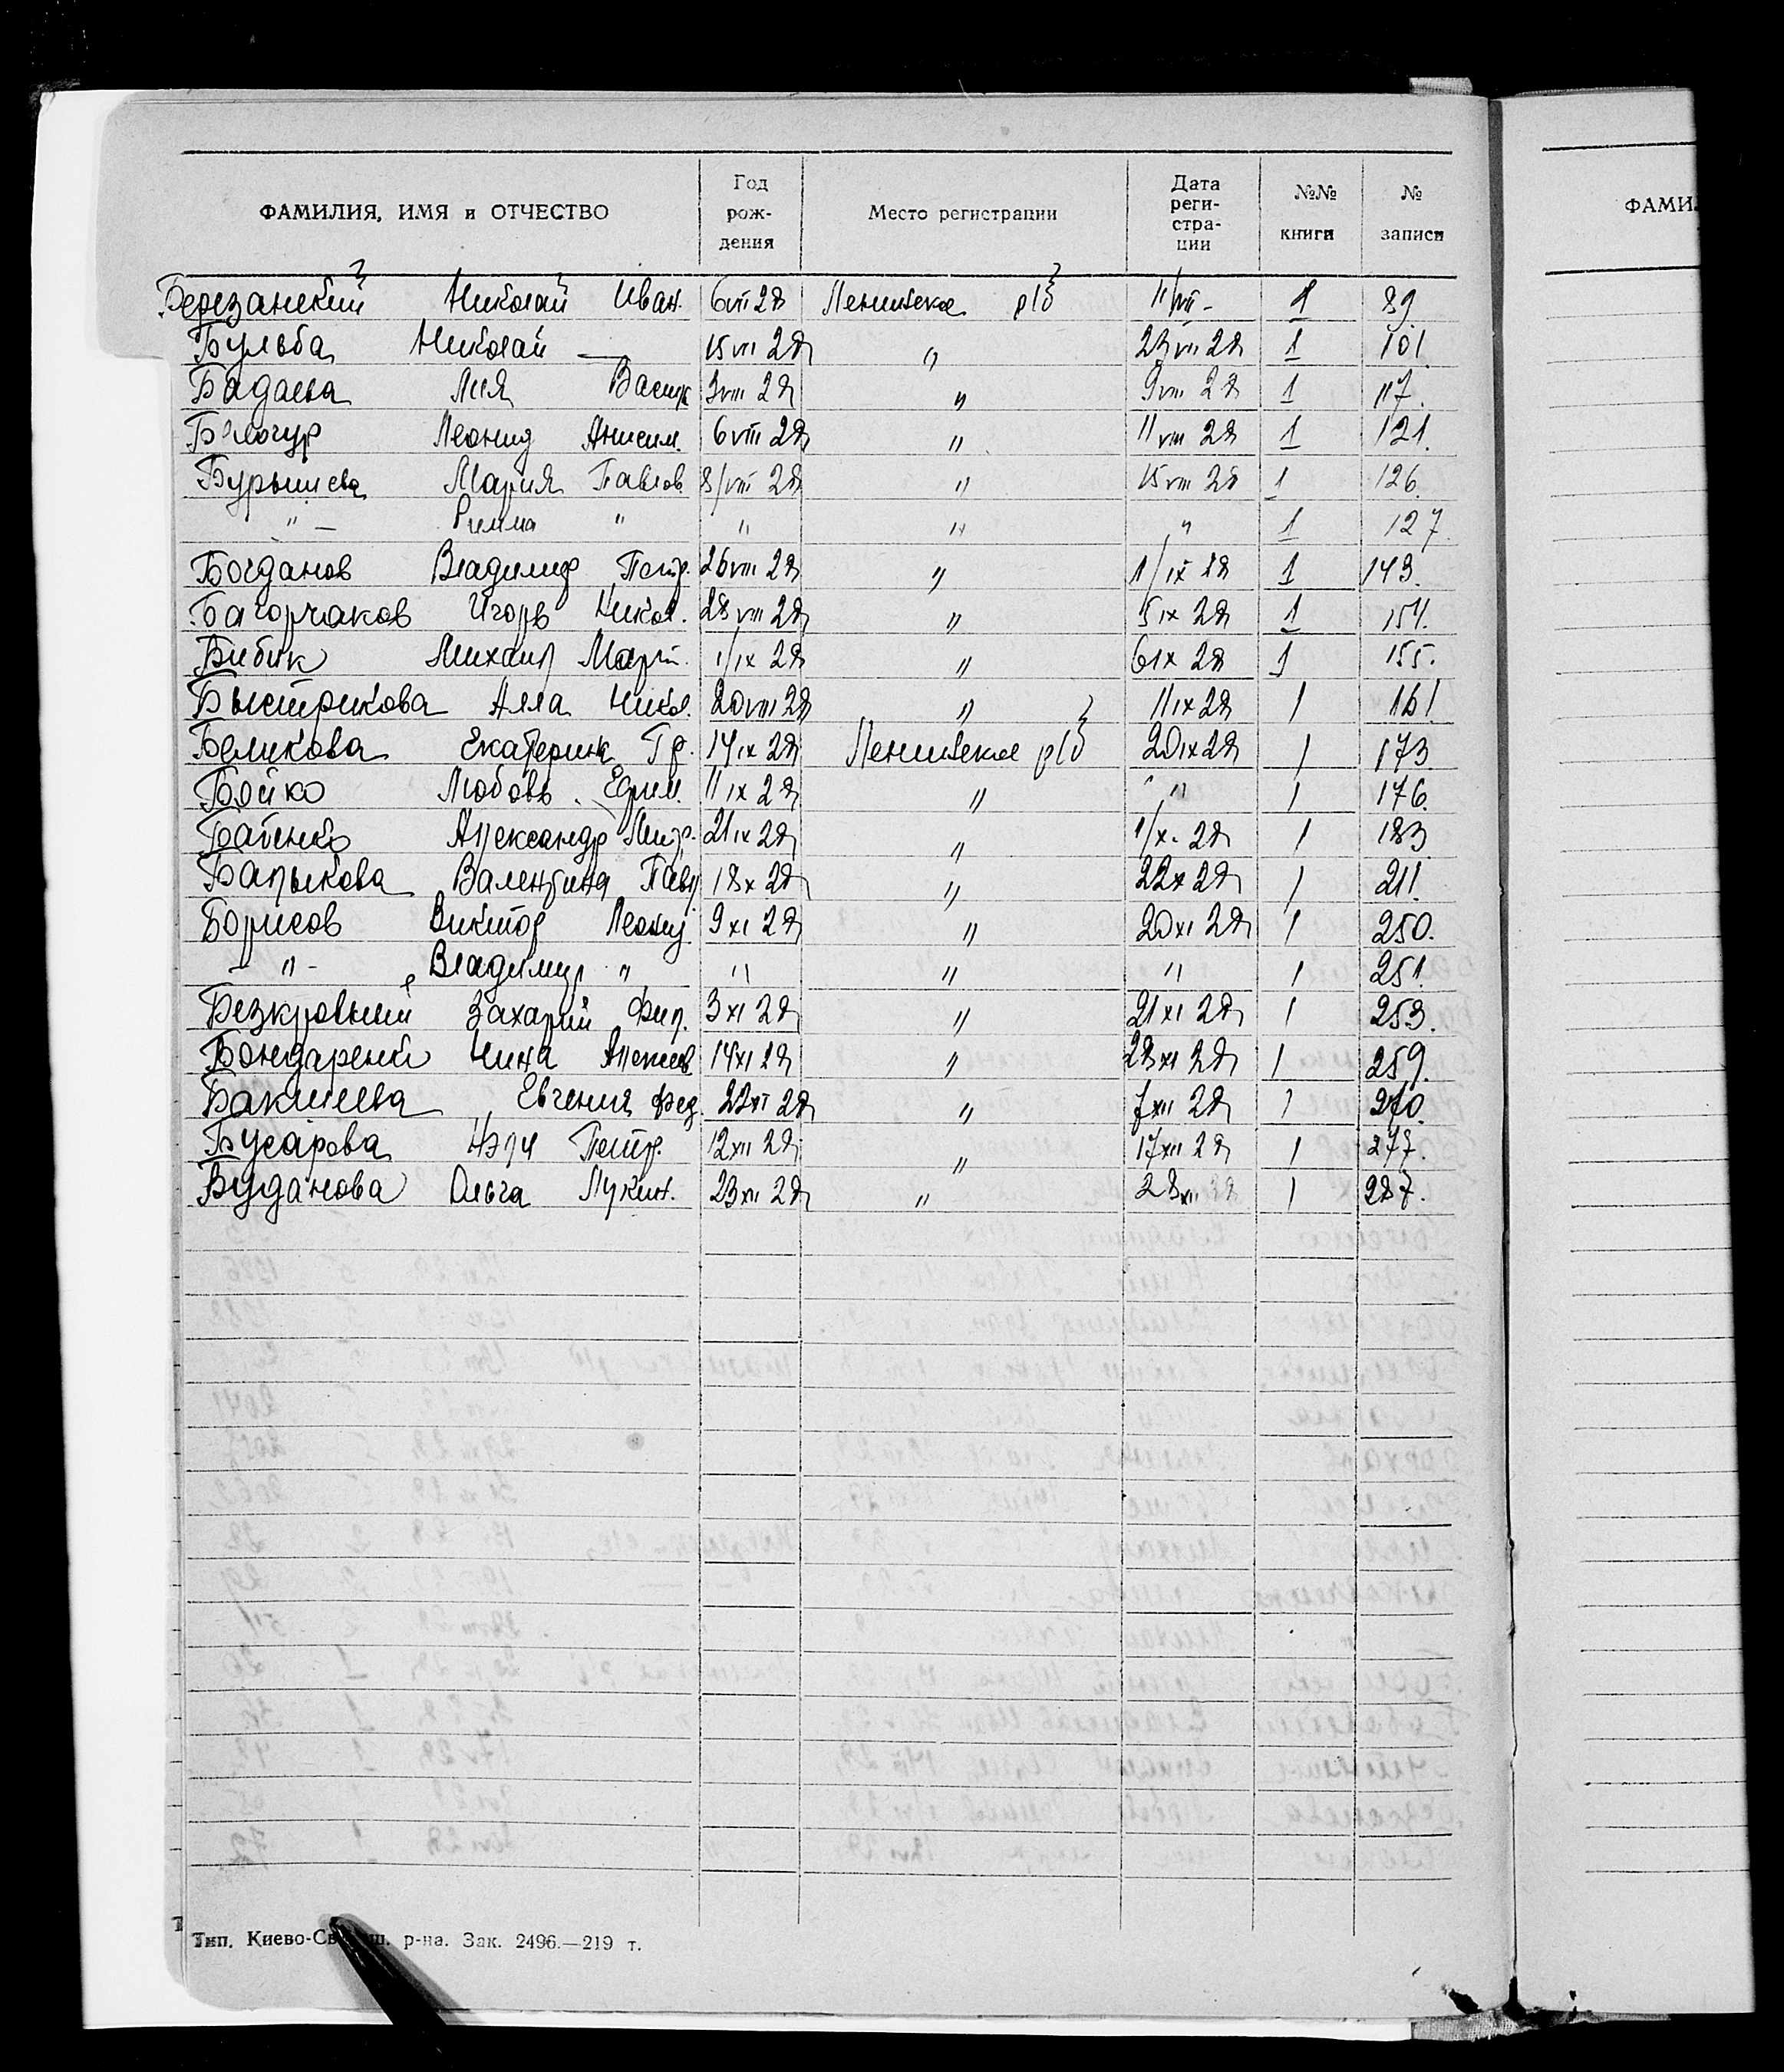 ФАМИЛИЯ, ИМЯ и ОТЧЕСТВО Год рож- дения Место регистрации Дата реги- стра- ции №№ книги № записи
ФАМИ
Березанский Николай Иван. 6 VII 28 Ленинское р/б 11/VII - 1 89
Бульба Николай — 15 VII 28 " 23 VII 28 1 101
Бадаева Лия Васил 3 VIII 28 " 9 VIII 28 1 117.
Белогур Леонид Анисим. 6 VIII 28 " 11 VIII 28 1 121.
Бурышева Мария Павлов. 8/VIII 28 " 15 VIII 28 1 126.
" — Римма " " " " 1 127
Богданов Владимир Петр. 26 VIII 28 " 1/IX 28 1 143.
Багорчаков Игорь Никол. 28 VIII 28 " 5 IX 28 1 154.
Бибик Михаил Март. 1/IX 28 " 6 IX 28 1 155.
Быстрикова Алла Никол. 20 VIII 28 " 11 IX 28 1 161
Беликова Екатерина Гр. 14 IX 28 Ленинское р/б 20 IX 28 1 173
Бойко Любовь Ефим. 11 IX 28 " " 1 176.
Батенко Александр Митр. 21 IX 28 " 1/X. 28 1 183
Балыкова Валентина Павл 18 X 28 " 22 X 28 1 211.
Борисов Виктор Леонид 9 XI 28 " 20 XI 28 1 250.
- " - Владимир " " " " 1 251.
Безкровный Захарий Фил. 3 XI 28 " 21 XI 28 1 253.
Бондаренко Нина Алексеев. 14 XI 28 " 28 XI 28 1 259.
Бакшеева Евгения Фед. 22 XI 28 " 7 XII 28 1 270
Бусарова Нэля Петр. 12 XII 28 " 17 XII 28 1 277.
Буданова Ольга Лукин. 23 XII 28 " 28 XII 28 1 287.
Тип. Киево-Св ш. р-на. Зак. 2496.—219 т.